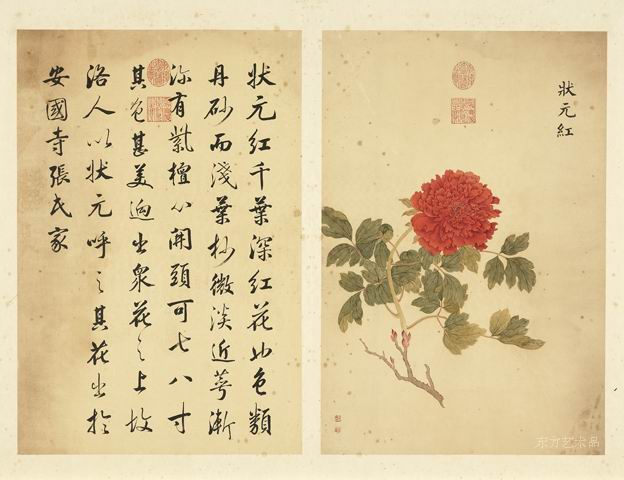 狀元紅
狀元紅千葉深紅花也色類
丹砂而淺葉杪微淡近萼漸
深有紫檀心開頭可七八寸
其色甚美迥出衆花之上故
洛人以狀元呼之其花出於
安國寺張氏家
东方艺术品